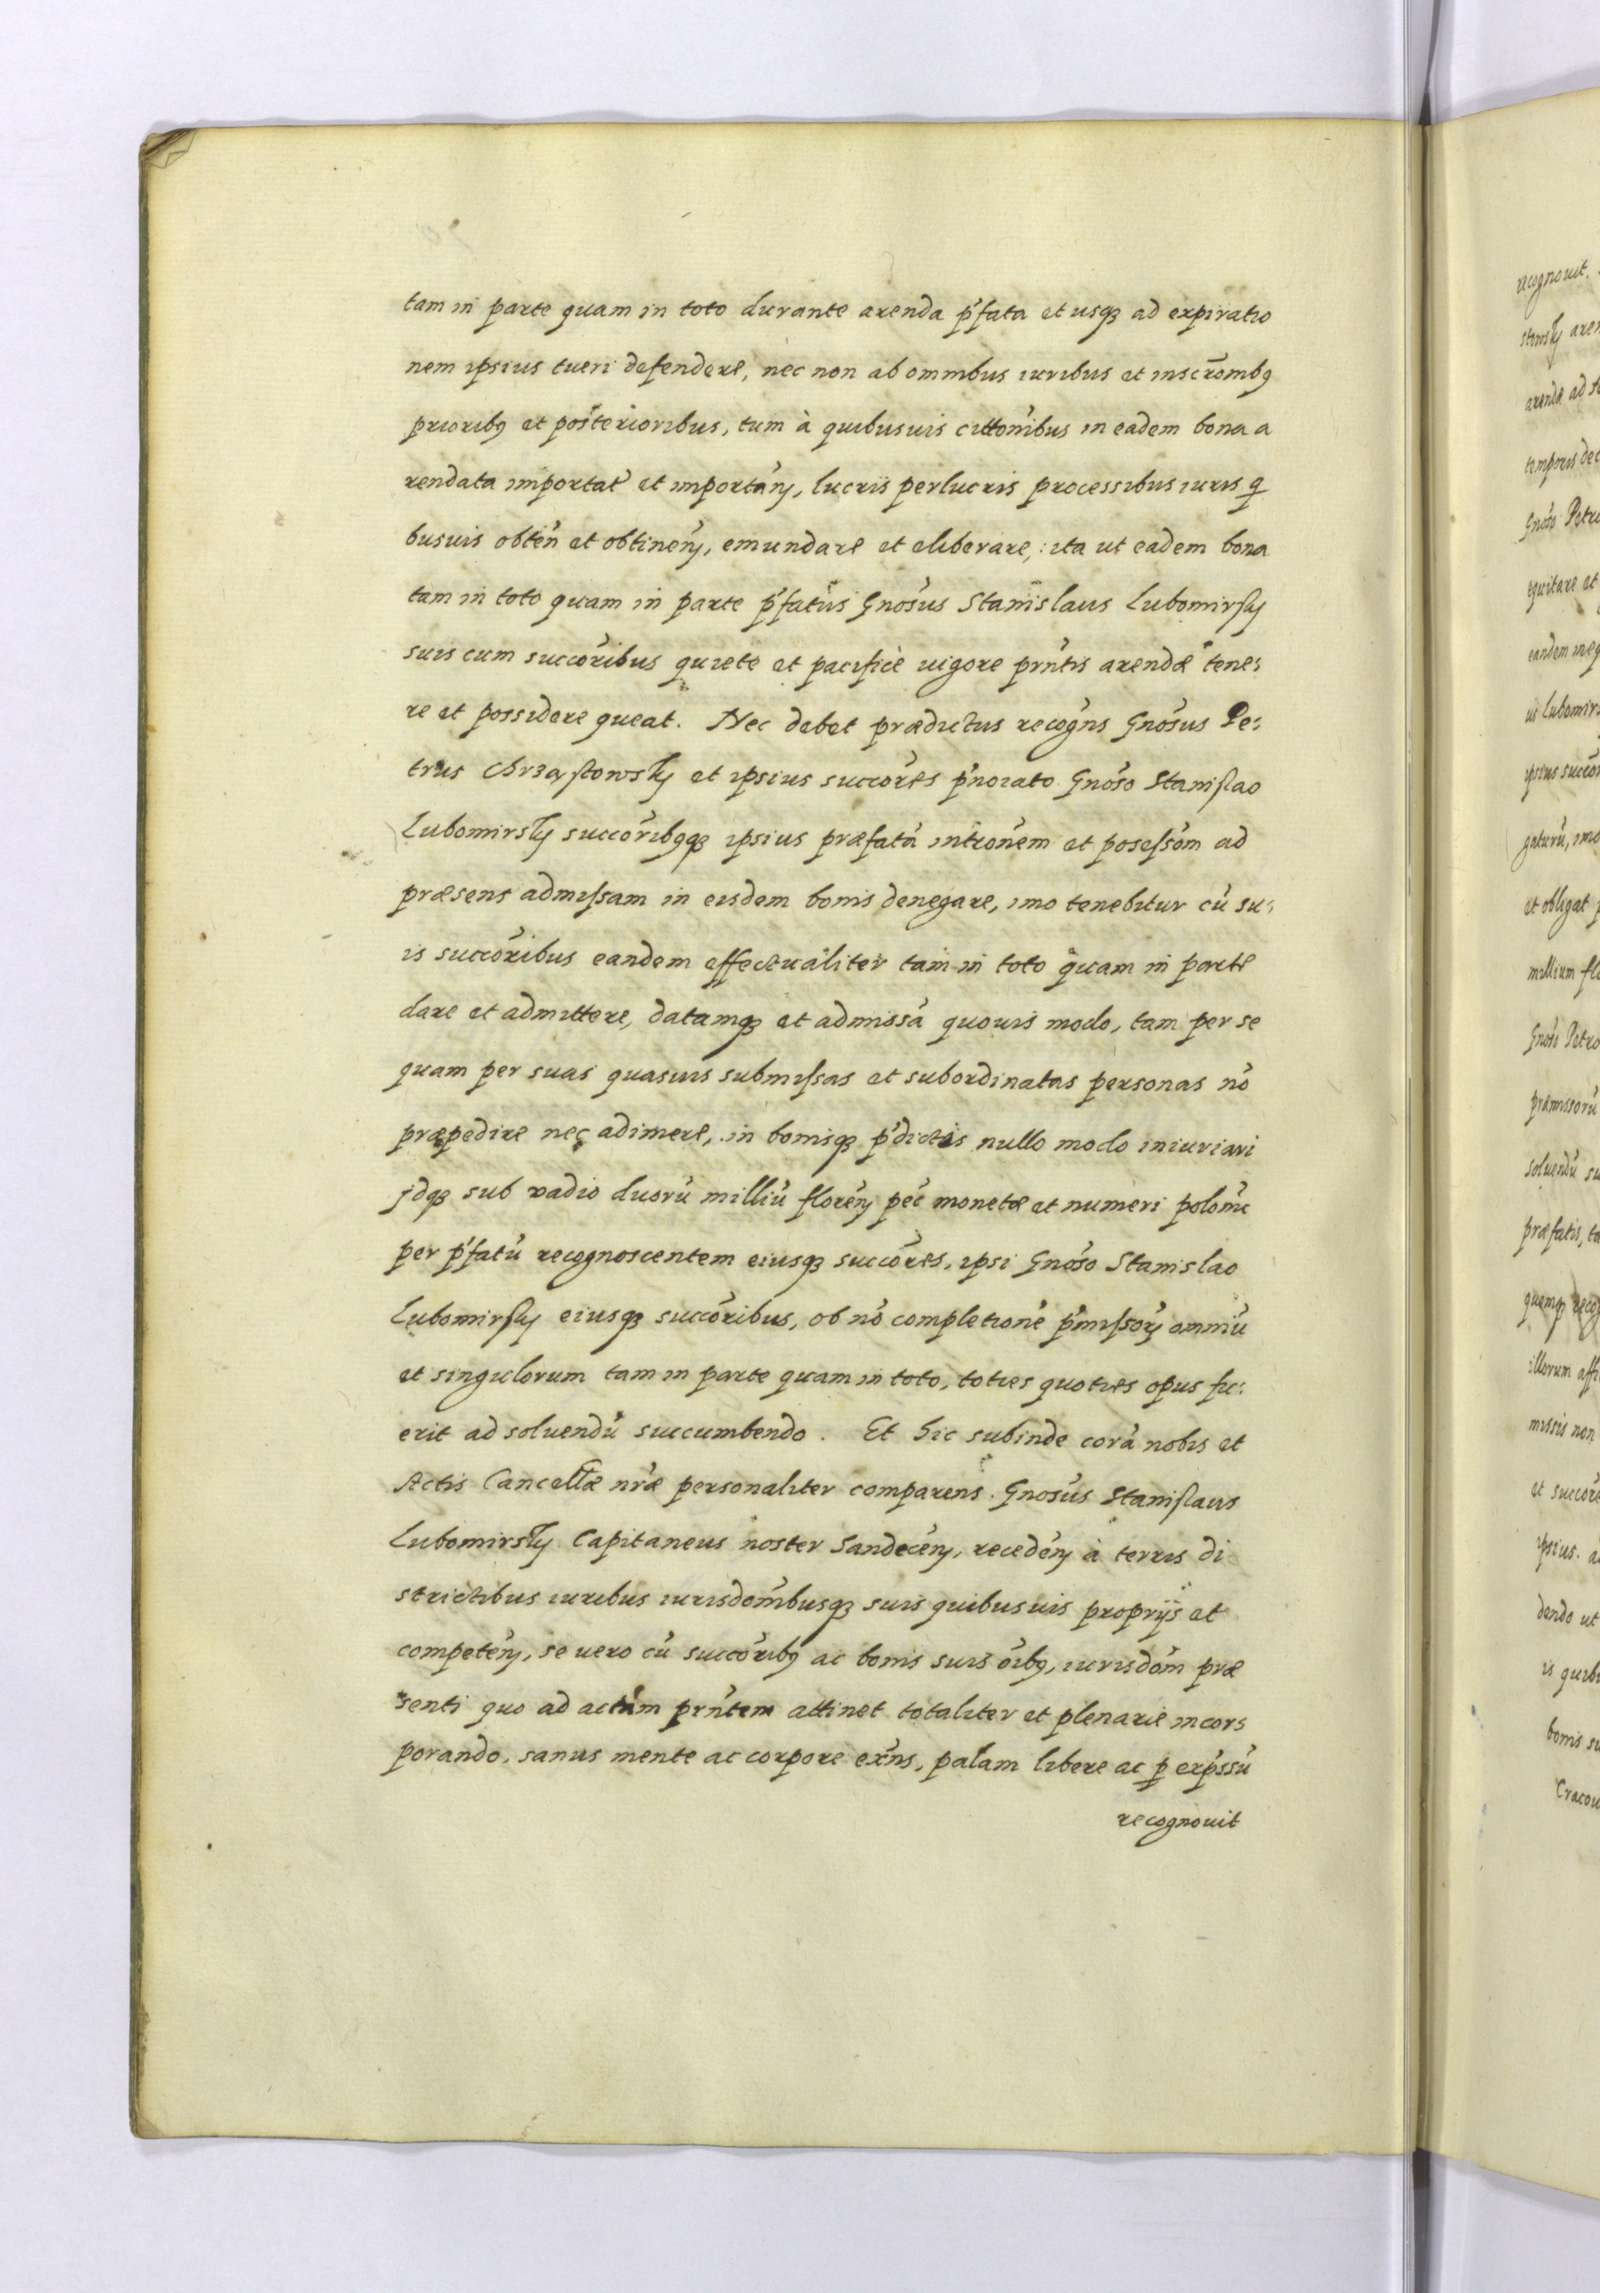 tam in parte quam in toto durante arenda p̃fata et usq₃ ad expiratio
nem ipsius tueri defendere, nec non ab omnibus iuribus et inscrõnibꝰ
prioribꝰ et posterioribus, tum à quibusuis cittõnibus in eadem bona a
rendata importat̃ et importãn, lucris perlucris processibus iuris q
busuis obteñ et obtineñ, emundare et eliberare, ita ut eadem bona
tam in toto quam in parte p̃fatus Gnõsus Stanislaus Lubomirsky
suis cum succõribus quiete et pacifice uigore prñtis arendæ tene:
re et possidere queat. Nec debet prædictus recogñs Gnõsus Pe:
trus Chrząstowsky et ipsius succõres p̃norato Gnõso Stanislao
Lubomirsky succõribꝰq₃ ipsius præfatã intrõnem et posessõm ad
præsens admissam in eisdem bonis denegare, imo tenebitur cũ su:
is succõribus eandem effectualiter tam in toto quam in parte
dare et admittere, datamq₃ et admissã quouis modo, tam per se
quam per suas quasuis submissas et subordinatas personas nõ
præpedire nec adimere, in bonisq₃ p̃dictis nullo modo iniuriari
jdq₃ sub vadio duorũ milliũ floreñ pẽc monetæ et numeri poloñic
per p̃fatũ recognoscentem eiusq₃ succõres, ipsi Gnõso Stanislao
Lubomirsky eiusq₃ succõribus, ob nõ completionẽ p̃missorꝝ omniũ
et singulorum tam in parte quam in toto, toties quoties opus fu:
erit ad soluendũ succumbendo. Et hic subinde corã nobis et
Actis Cancellæ nr̃æ personaliter comparens Gnõsus Stanislaus
Lubomirsky Capitaneus noster Sandeceñ, recedeñ à terris di
strictibus iuribus iurisdõnibusq₃ suis quibusuis proprijs et
competeñ, se uero cũ succõribꝰ ac bonis suis õibꝰ, iurisdõm præ
senti quo ad actum prñtem attinet totaliter et plenarie incor:
porando, sanus mente ac corpore exñs, palam libere ac p exp̃ssũ
recognouit